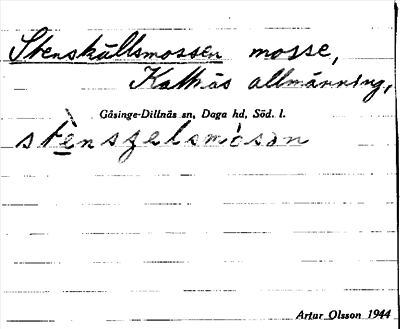 Stenskällsmossen mosse,
Kalknäs allmänning,
Gåsinge-Dillnäs sn, Daga hd, Söd. l.
stènsʒelsmòsɘn
Artur Olsson 1944